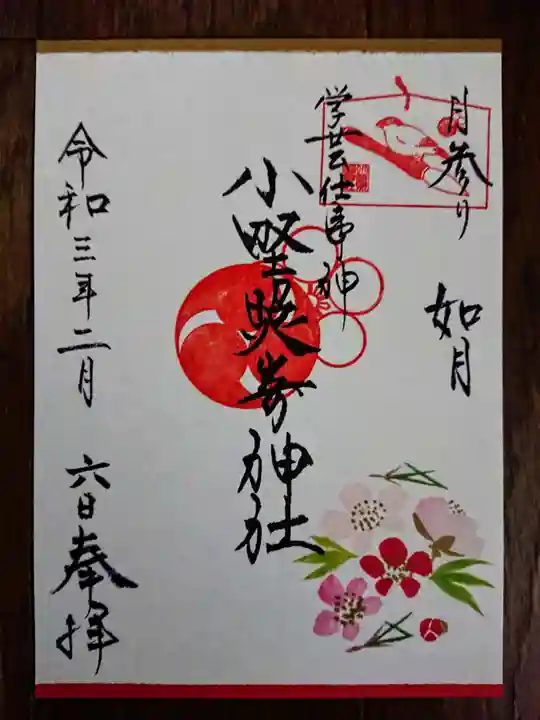 月参り 如月
学芸仕事神
小野照崎神社
令和三年二月 六日奉拝